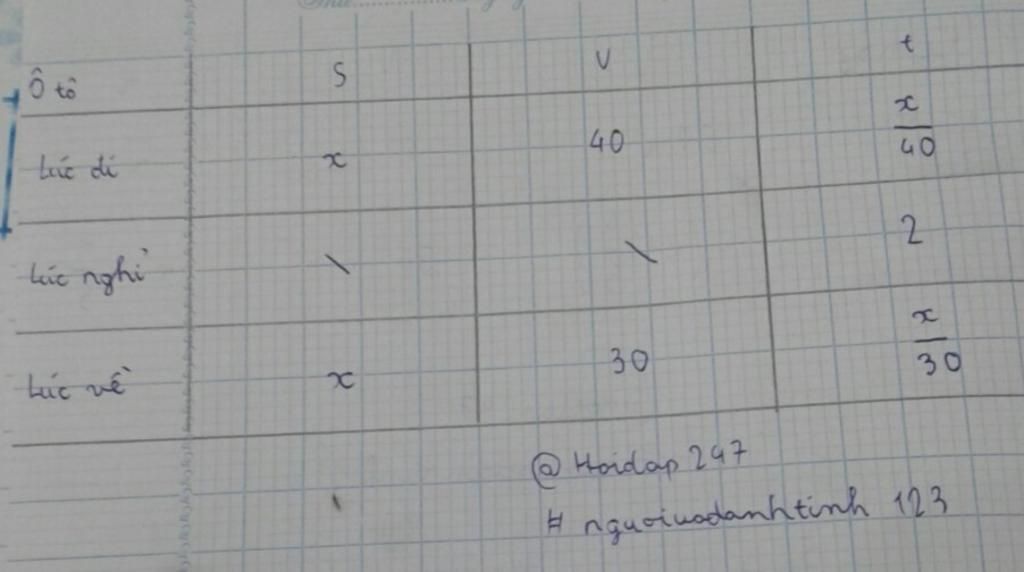 Ô tô S V t
Lúc đi x 40 x/40
Lúc nghỉ \ \ 2
Lúc về x 30 x/30
@ Hoidap 247
# nguoivodanhtinh 123